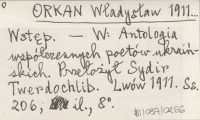 ORKAN Władysław 1911...
Wstęp. — W: Antologia
współczesnych poetów ukraiń-
skich. Przełożył Sydir
Twerdochlib. Lwów 1911. Ss.
206, il., 8°.